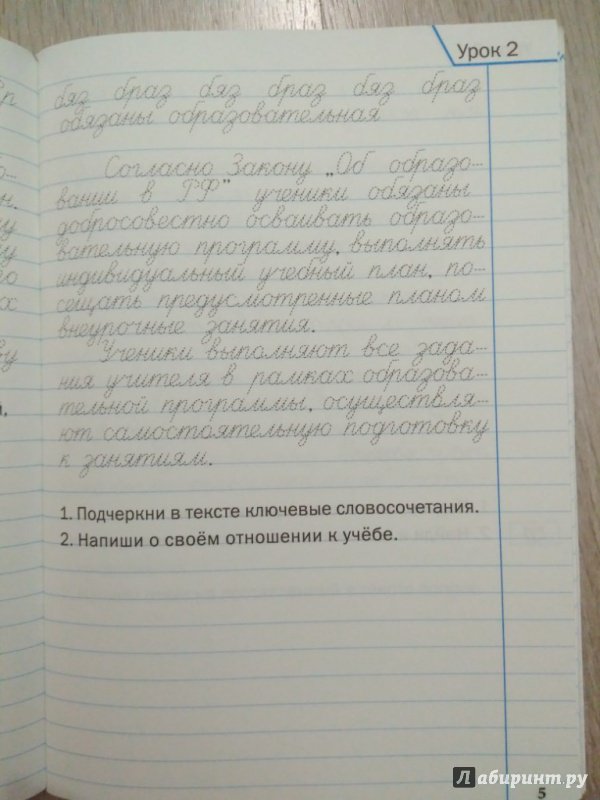 Урок 2
бяз браз бяз браз бяз браз
обязаны образовательная
Согласно Закону „Об образо-
вании в РФ" ученики обязаны
добросовестно осваивать образо-
вательную программу, выполнять
индивидуальный учебный план, по-
сещать предусмотренные планом
внеурочные занятия.
Ученики выполняют все зада-
ния учителя в рамках образова-
тельной программы, осуществля-
ют самостоятельную подготовку
к занятиям.
1. Подчеркни в тексте ключевые словосочетания.
2. Напиши о своём отношении к учёбе.
5
Лабиринт.ру